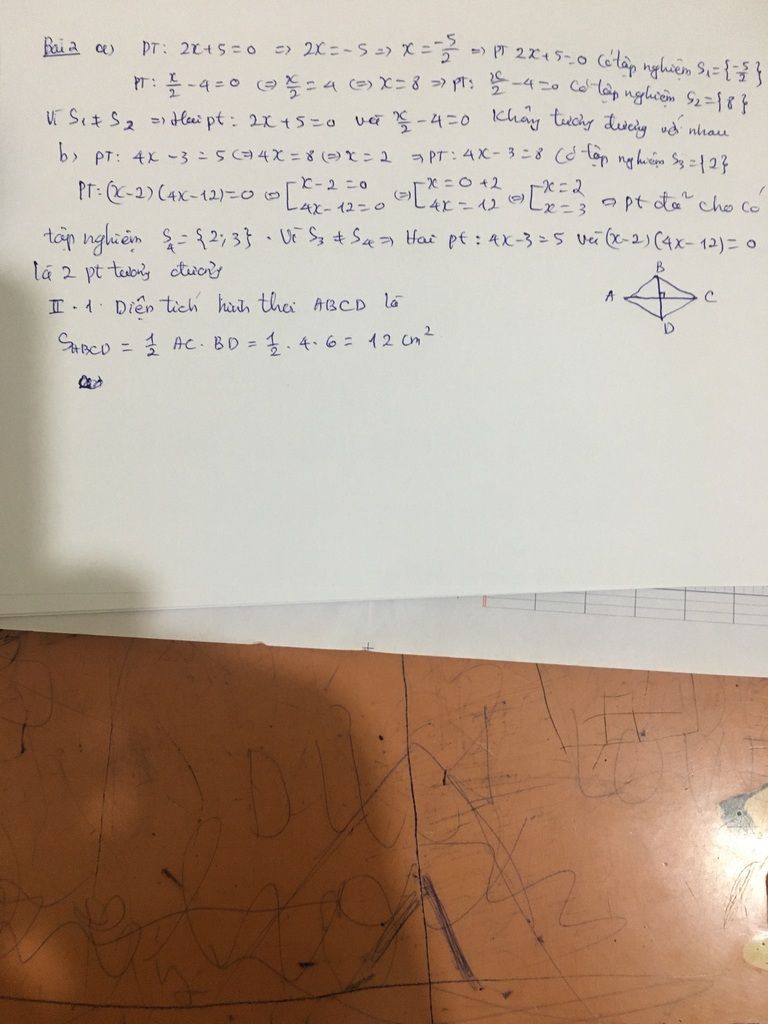 Bài 2 a) PT: 2x+5=0 => 2x=-5 => x=-5/2 => PT 2x+5=0 Có tập nghiệm S₁={-5/2}
PT: x/2-4=0 <=> x/2=4 <=> x=8 => PT: x/2-4=0 Có tập nghiệm S₂={8}
Vì S₁≠S₂ => Hai pt: 2x+5=0 với x/2-4=0 không tương đương với nhau
b) PT: 4x-3=5 <=> 4x=8 <=> x=2 => PT: 4x-3=8 Có tập nghiệm S₃={2}
PT: (x-2)(4x-12)=0 <=> [x-2=0 4x-12=0 <=> [x=0+2 4x=12 <=> [x=2 x=3 => pt đã cho có
tập nghiệm S₄={2;3}. Vì S₃≠S₄ => Hai pt: 4x-3=5 với (x-2)(4x-12)=0
là 2 pt tương đương
B
A C
D
II.1. Diện tích hình thoi ABCD là
S_ABCD = 1/2 AC.BD = 1/2.4.6 = 12 cm²